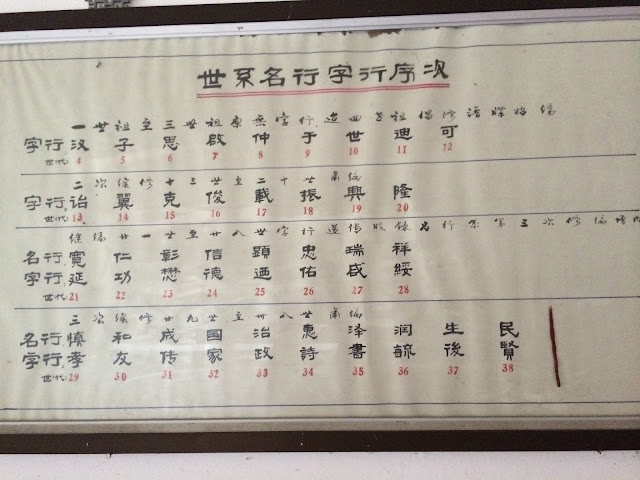 世系名行字行序次
一世祖至三世祖原無字行造四世祖倡修譜牒
字行 汉 子 思 啟 仲 于 世 迪 可
世代: 4 5 6 7 8 9 10 11 12
二次续修十三世至二十世
字行 诒 翼 克 俊 載 振 興 隆
世代: 13 14 15 16 17 18 19 20
继编廿一世至廿八世字行 名行 第三次修编增
名行 寛 仁 彰 信 顕 忠 瑞 祥
字行 延 功 懋 德 迺 佑 咸 綏
世代: 21 22 23 24 25 26 27 28
三次续修廿九世至卅八世
名行 和 成 国 治 惠 泽 润 生 民
字行 孝 友 传 家 政 詩 書 諒 後 賢
世代: 29 30 31 32 33 34 35 36 37 38